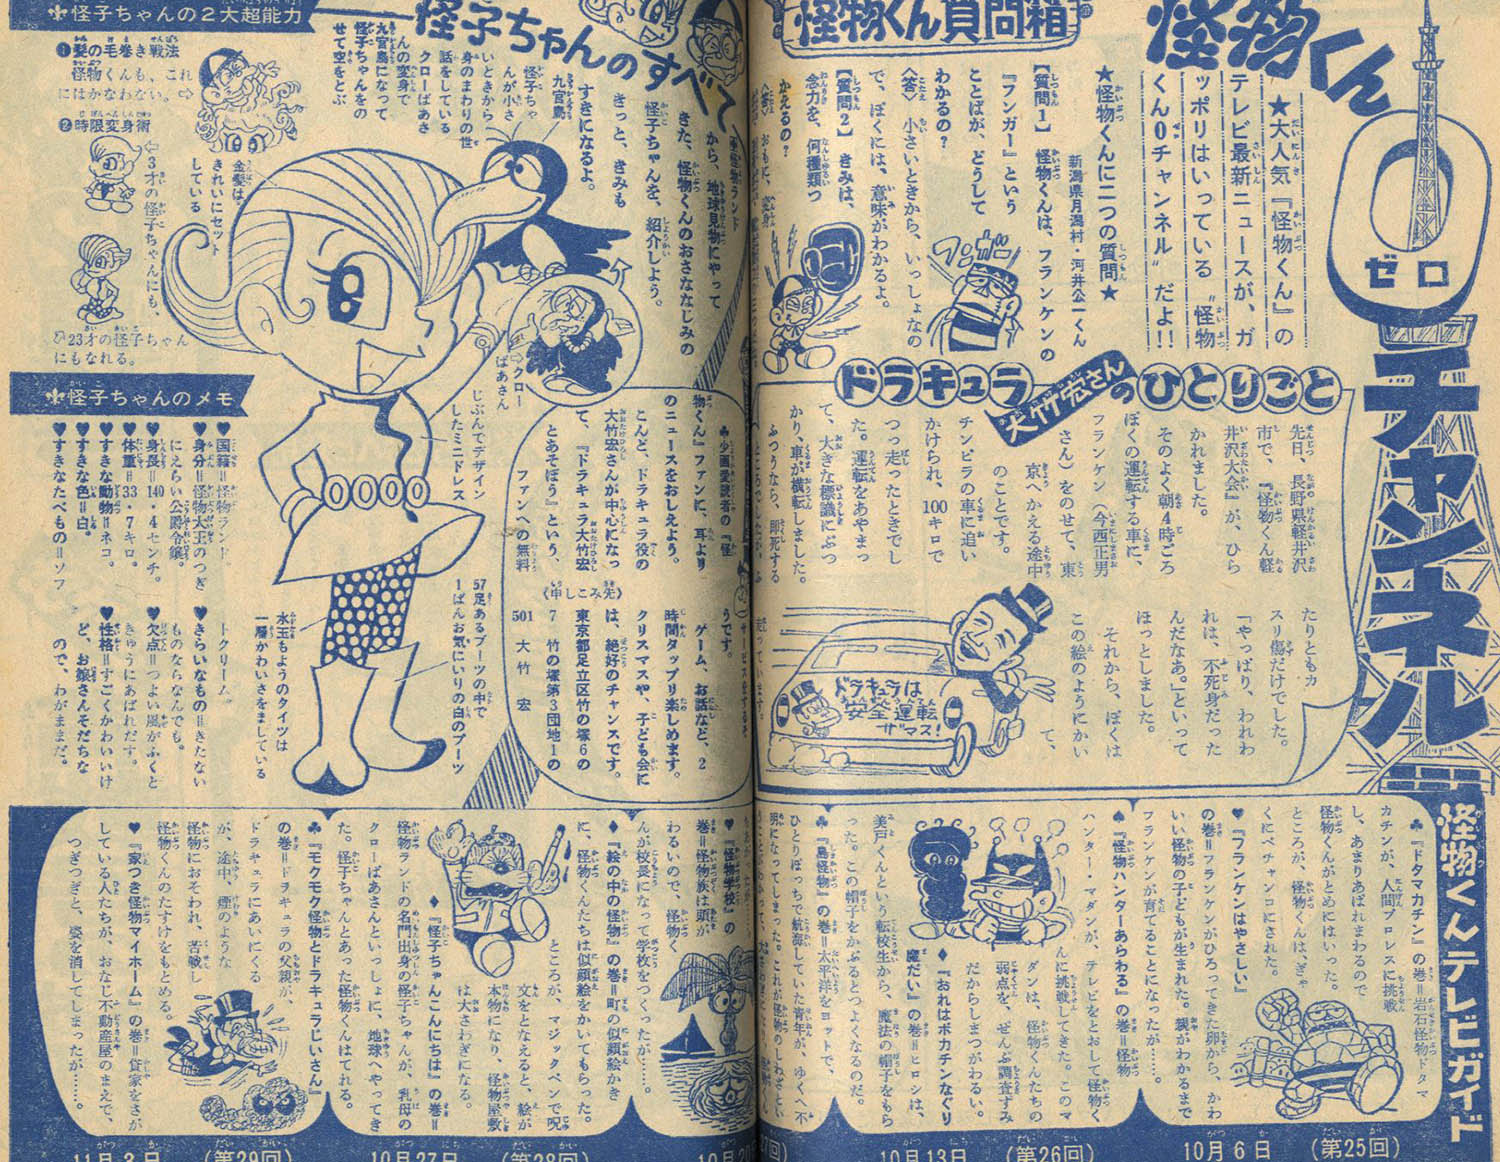 怪物くん
0
ゼロ
チャンネル
★大人気『怪物くん』の
テレビ最新ニュースが、ガ
ッポリはいっている〝怪物
くん0チャンネル〟だよ!!
怪物くん質問箱
★怪物くんに二つの質問★
新潟県月潟村・河井公一くん
【質問1】 怪物くんは、フランケンの
『フンガー』という
ことばが、どうして
わかるの?
〈答〉 小さいときから、いっしょなの
で、ぼくには、意味がわかるよ。
【質問2】 きみは、
念力を、何種類つ
かえるの?
フンガー
ドラキュラ
大竹宏さん
のひとりごと
先日、長野県軽井沢
市で、『怪物くん軽
井沢大会』が、ひら
かれました。
そのよく朝4時ごろ
ぼくの運転する車に、
フランケン(今西正男
さん)をのせて、東
京へかえる途中
のことです。
チンピラの車に追い
かけられ、100キロで
つっ走ったときでし
た。運転をあやまっ
て、大きな標識にぶつ
かり、車が横転しました。
ふつうなら、即死する
たりともカ
スリ傷だけでした。
「やっぱり、われわ
れは、不死身だった
んだなあ。」といって
ほっとしました。
それから、ぼくは
この絵のようにかい
て、
ドラキュラは
安全運転
ザマス!
怪子ちゃんのすべて
から、地球見物にやって
きた、怪物くんのおさななじみの
怪子ちゃんを、紹介しよう。
きっと、きみも
すきになるよ。
九官鳥
怪子ちゃ
んが小さ
いときから、
身のまわりの世
話をしている
クローばあさ
んの変身で
九官鳥になって
怪子ちゃんを
せて空をとぶ
⇨クロー
ばあさん
怪子ちゃんの2大超能力
❶髪の毛巻き戦法
怪物くんも、これ
にはかなわない。⇨
❷時限変身術
⇦3才の怪子ちゃんにも、
23才の怪子ちゃん
にもなれる。
金髪は、
きれいにセット
している
じぶんでデザイン
したミニドレス
57足あるブーツの中で
一ばんお気にいりの白のブーツ
水玉もようのタイツは
一層かわいさをましている
怪子ちゃんのメモ
♥国籍=怪物ランド。
♥身分=怪物大王のつぎ
にえらい公爵令嬢。
♥身長=140・4センチ。
♥体重=33・7キロ。
♥すきな動物=ネコ。
♥すきな色=白。
♥すきなたべもの=ソフ
トクリーム
♥きらいなもの=きたない
ものならなんでも。
♥欠点=つよい風がふくと
きゅうにあばれだす。
♥性格=すごくかわいいけ
ど、お嬢さんそだちな
ので、わがままだ。
♣少画愛読者の『怪
物くん』ファンに、耳より
のニュースをおしえよう。
こんど、ドラキュラ役の
大竹宏さんが中心になっ
て、『ドラキュラ大竹宏
とあそぼう』という、
ファンへの無料
うです。
ゲーム、お話など、2
時間タップリ楽しめます。
クリスマスや、子ども会に
は、絶好のチャンスです。
《申しこみ先》
東京都足立区竹の塚6の
7 竹の塚第3団地1の
501 大竹宏
怪物くんテレビガイド
♣『ドタマカチン』の巻=岩石怪物ドタマ
カチンが、人間プロレスに挑戦
し、あまりあばれまわるので
怪物くんがとめにはいった。
ところが、怪物くんは、ぎゃ
くにペチャンコにされた。
♥『フランケンはやさしい』
の巻=フランケンがひろってきた卵から、かわ
いい怪物の子どもが生まれた。親がわかるまで
フランケンが育てることになったが……。
10月6日 (第25回)
♠『怪物ハンターあらわる』の巻=怪物
ハンター・マダンが、テレビをとおして怪物く
んに挑戦してきた。このマ
ダンは、怪物くんたちの
弱点を、ぜんぶ調査ずみ
だからしまつがわるい。
♦『おれはボカチンなぐり
魔だい』の巻=ヒロシは、
美戸くんという転校生から、魔法の帽子をもら
った。この帽子をかぶるとつよくなるのだ。
10月13日 (第26回)
♣『島怪物』の巻=太平洋をヨットで、
ひとりぼっちで航海していた青年が、ゆくえ不
明になってしまった。これが怪物のしわざとい
♥『怪物学校』の
巻=怪物族は頭が
わるいので、怪物く
んが校長になって学校をつくったが……。
♦『絵の中の怪物』の巻=町の似顔絵かき
に、怪物くんたちは似顔絵をかいてもらった。
ところが、マジックペンで呪
文をとなえると、絵が
本物になり、怪物屋敷
は大さわぎになる。
♦『怪子ちゃんこんにちは』の巻=
怪物ランドの名門出身の怪子ちゃんが、乳母の
クローばあさんといっしょに、地球へやってき
た。怪子ちゃんとあった怪物くんはてれる。
10月27日 (第28回)
♣『モクモク怪物とドラキュラじいさん』
の巻=ドラキュラの父親が、
ドラキュラにあいにくる
が、途中、煙のような
怪物におそわれ、苦戦し
怪物くんのたすけをもとめる。
♥『家つき怪物マイホーム』の巻=貸家をさが
している人たちが、おなじ不動産屋のまえで、
つぎつぎと、姿を消してしまったが……。
11月3日 (第29回)